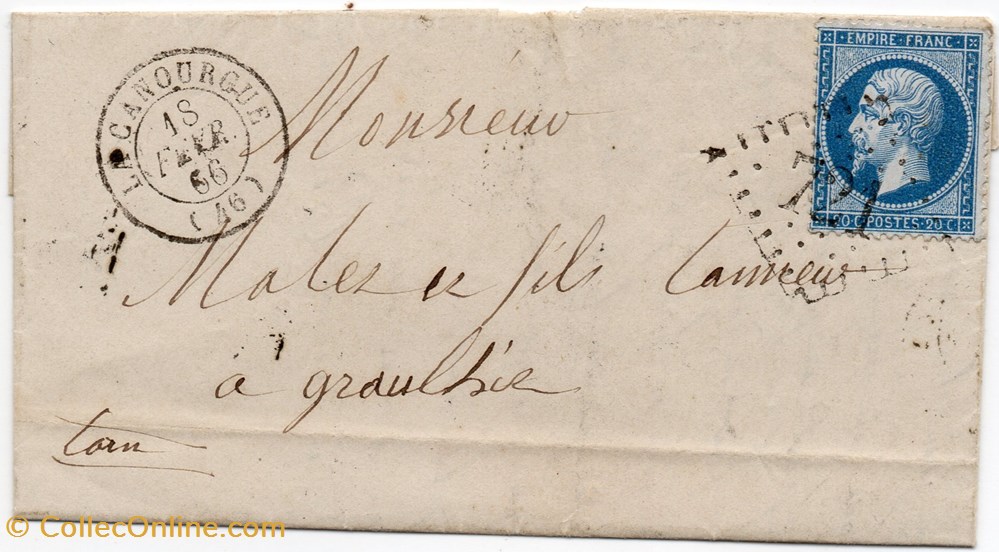 LA CANOURGUE
18
FEVR.
66
(46)
EMPIRE FRANC
721
20 C POSTES 20 C
Monsieur
Malez et fils Tanneur
à graulhiez
tarn
© CollecOnline.com